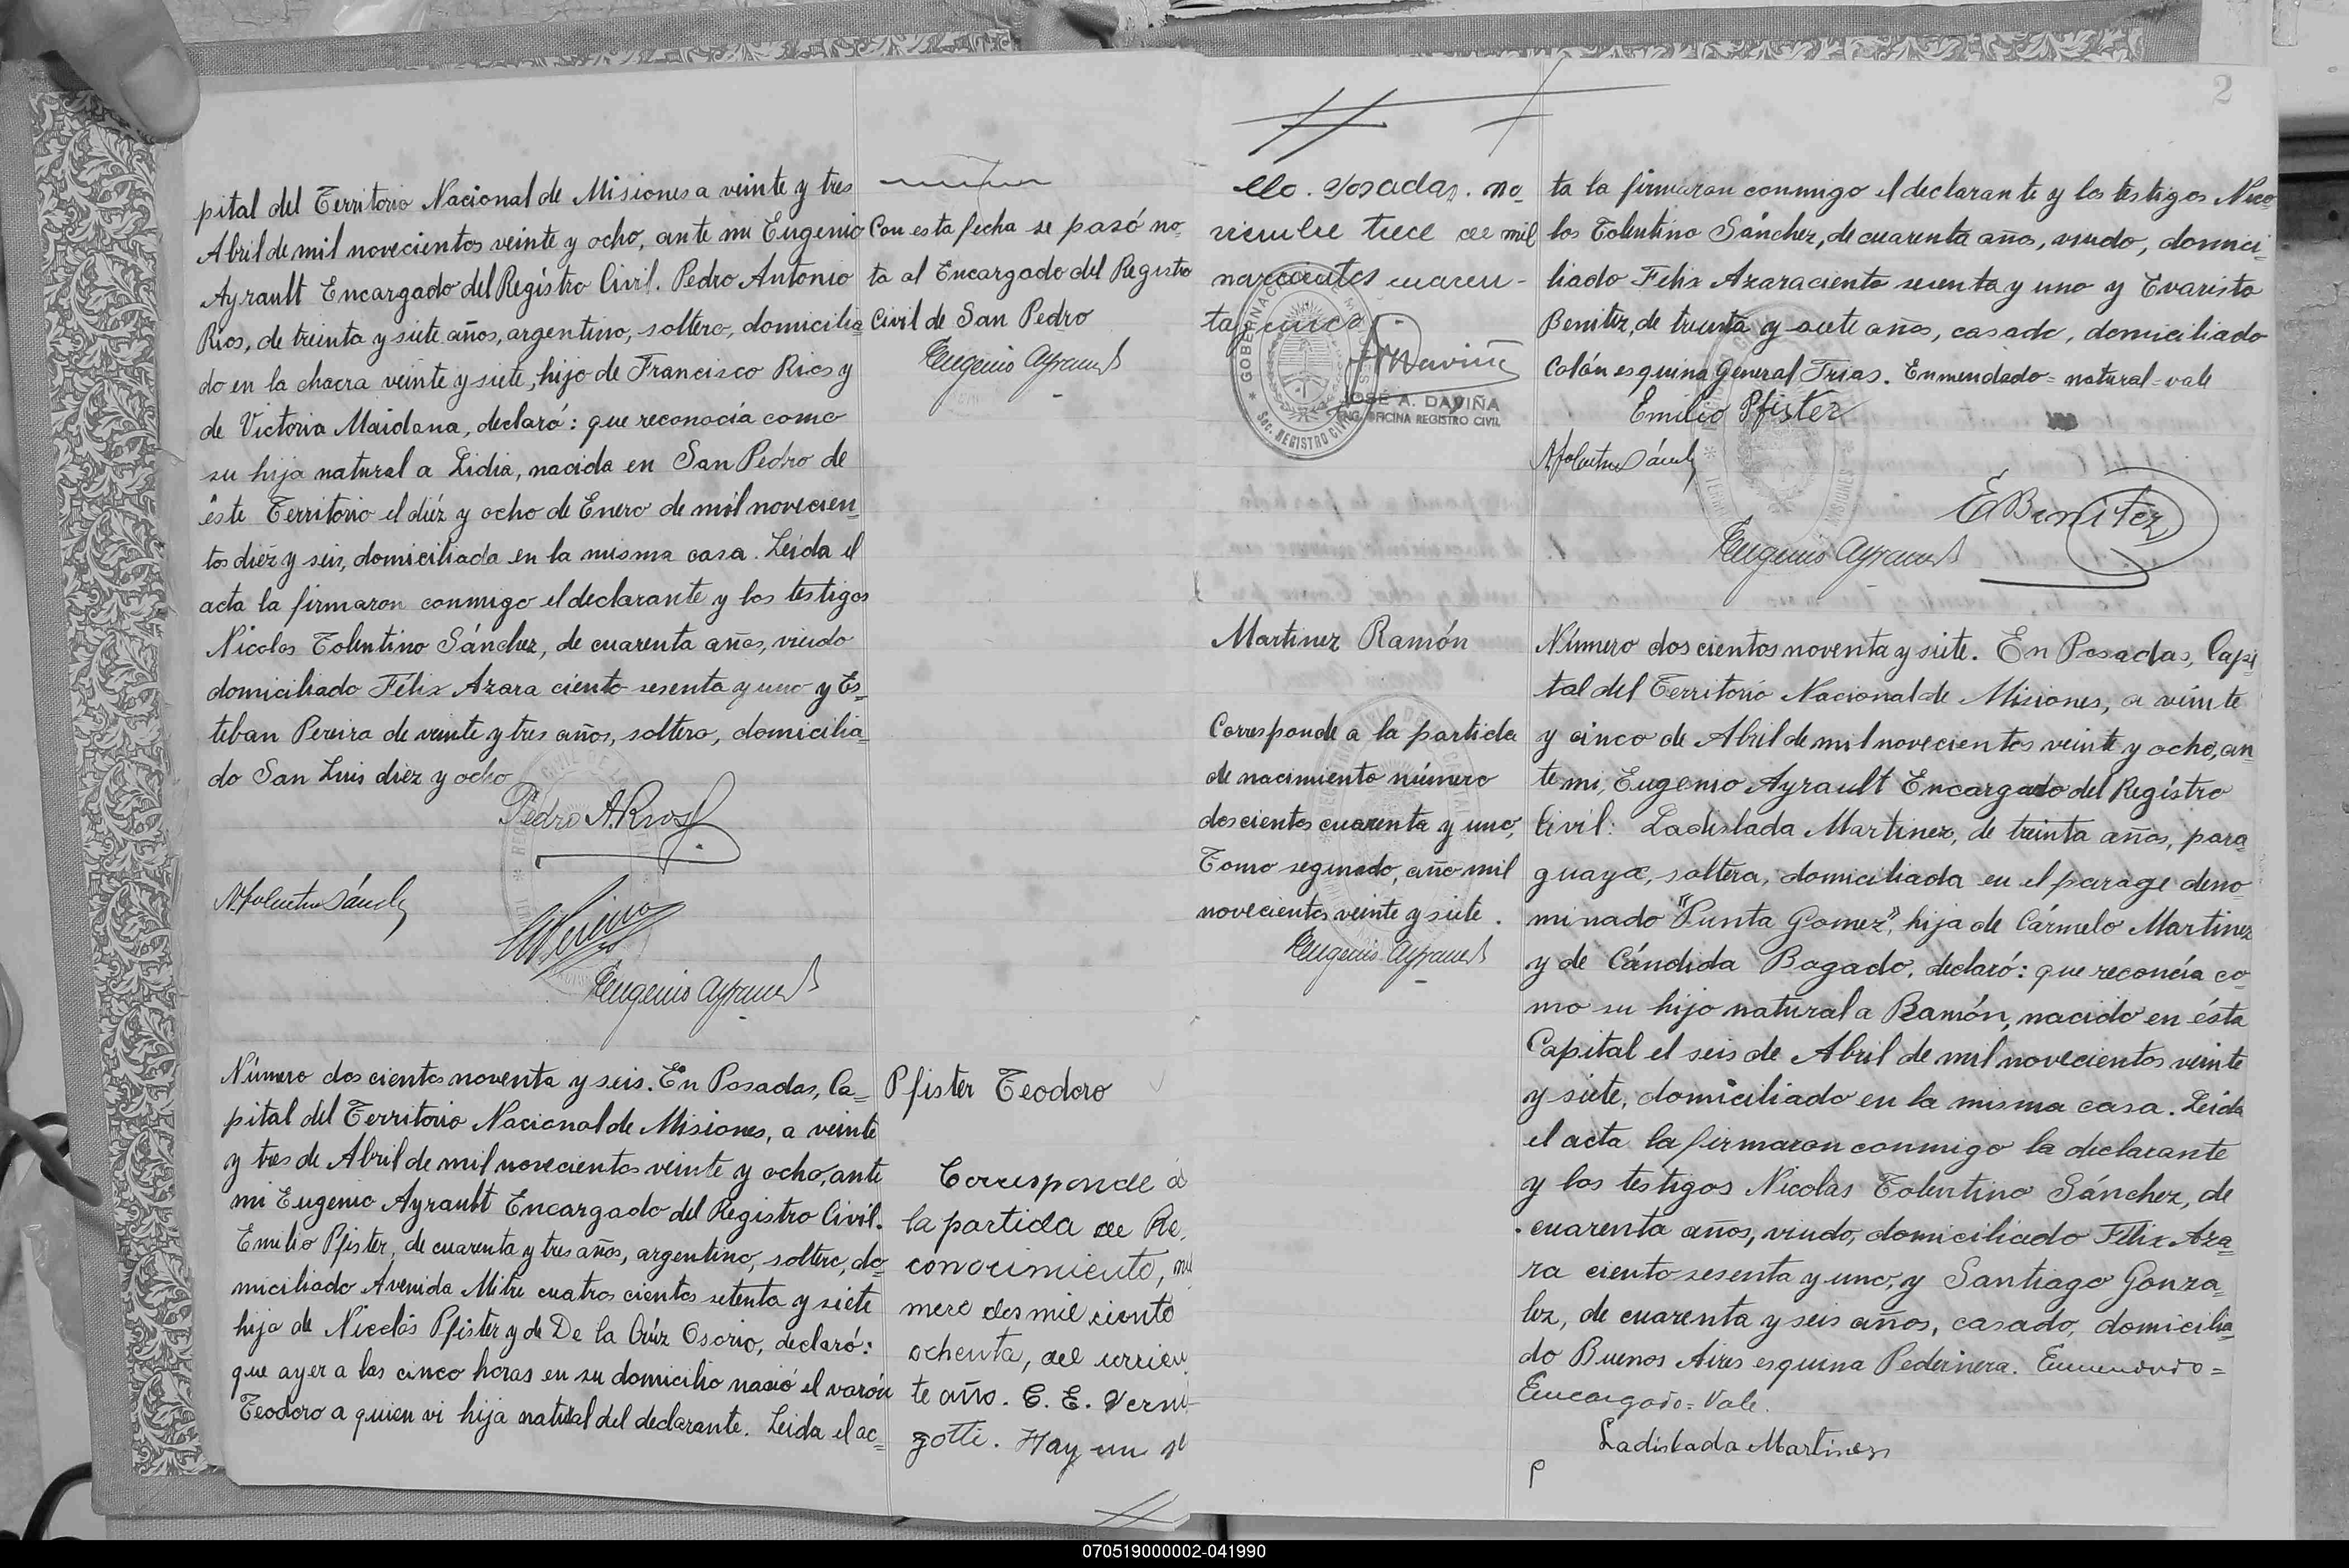 pital del Territorio Nacional de Misiones a veinte y tres
Abril de mil novecientos veinte y ocho, ante mi Eugenio
Ayrault Encargado del Registro Civil. Pedro Antonio
Rios, de treinta y siete años, argentino, soltero, domicilia
do en la chacra veinte y siete, hijo de Francisco Rios y
de Victoria Maidana, declaró: que reconocía como
su hija natural a Lidia, nacida en San Pedro de
éste Territorio el diéz y ocho de Enero de mil novecien
tos diez y seis, domiciliada en la misma casa. Leida el
acta la firmaron conmigo el declarante y los testigos
Nicolos Tolentino Sánchez, de cuarenta años, viudo
domiciliado Félix Azara ciento sesenta y uno y Es=
teban Pereira de veinte y tres años, soltero, domicilia=
do San Luis diez y ocho
Pedro A. Rios
N. Tolentino Sánch
Eugenio Ayrault
Con esta fecha se pasó no=
ta al Encargado del Registro
Civil de San Pedro
Eugenio Ayrault
Número dos cientos noventa y seis. En Posadas, Ca=
pital del Territorio Nacional de Misiones, a veinte
y tres de Abril de mil novecientos veinte y ocho, ante
mi Eugenio Ayrault Encargado del Registro Civil.
Emilio Pfister, de cuarenta y tres años, argentino, soltero, do=
miciliado Avenida Mitre cuatros cientos setenta y siete
hijo de Nicolás Pfister y de De la Crúz Osorio, declaró:
que ayer a las cinco horas en su domicilio nació el varón
Teodoro a quien vi hija natural del declarante. Leida el ac=
Pfister Teodoro
Corresponde a
la partida de Re.
conocimiento, nú
mero dos mil ciento
ochenta, del corrien
te año. C. E. Verni-
zotti. Hay un se
2
llo. Posadas. no-
viembre trece de mil
novecientos cuaren-
ta y cinco
JOSÉ A. DAVIÑA
ENC. OFICINA REGISTRO CIVIL
ta la firmaron conmigo el declarante y los testigos Nico
los Tolentino Sánchez, de cuarenta años, viudo, domici=
liado Felix Azara ciento sesenta y uno y Evaristo
Benitez, de treinta y siete años, casado, domiciliado
Colón esquina General Frias. Enmendado=natural=vale
Emilio Pfister
N. Tolentino Sánch
E Benitez
Eugenio Ayrault
Martinez Ramón
Corresponde a la partida
de nacimiento número
doscientos cuarenta y uno,
Tomo segundo, año mil
novecientos veinte y siete.
Eugenio Ayrault
Número dos cientos noventa y siete. En Posadas, Capi
tal del Territorio Nacional de Misiones, a veinte
y cinco de Abril de mil novecientos veinte y ocho, an
te mi, Eugenio Ayrault Encargado del Registro
Civil: Ladislada Martinez, de treinta años, para
guaya, soltera, domiciliada en el parage deno
minado "Punta Gomez", hija de Cármelo Martinez
y de Cándida Bogado, declaró: que reconcía co=
mo su hijo natural a Ramón, nacido en ésta
Capital el seis de Abril de mil novecientos veinte
y siete, domiciliado en la misma casa. Leida
el acta la firmaron conmigo la declarante
y los testigos Nicolas Tolentino Sánchez, de
cuarenta años, viudo, domiciliado Félix Aza=
ra ciento sesenta y uno, y Santiago Gonza=
lez, de cuarenta y seis años, casado, domicilia=
do Buenos Aires esquina Pedernera. Enmendado=
Encargado=Vale.
Ladislada Martinez
070519000002-041990